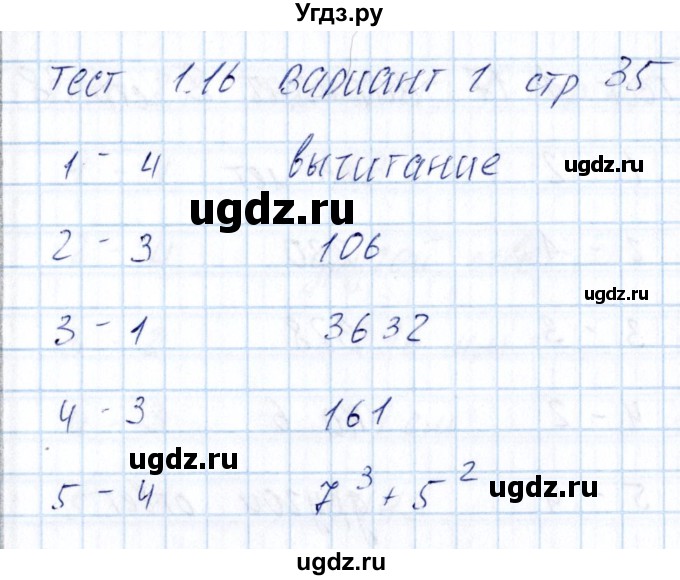 Угдз.ру
тест 1.16 вариант 1 стр 35
ugdz.ru
1 - 4 вычитание
ugdz.ru
2 - 3 106
ugdz.ru
3 - 1 3632
ugdz.ru
4 - 3 161
ugdz.ru
5 - 4 7³ + 5²
ugdz.ru
ugdz.ru